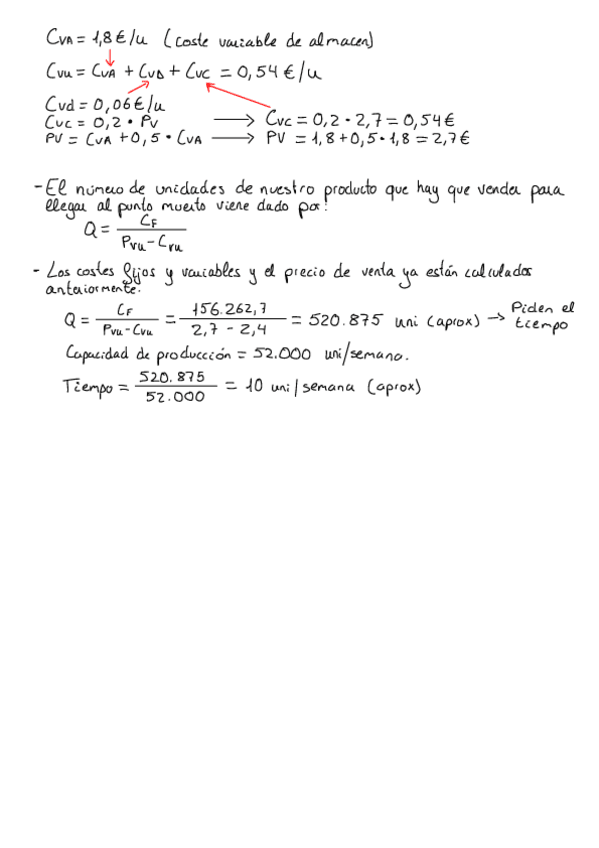 CVA = 1,8€/u (coste variable de almacen)
CVu = CVA + CVD + CVC = 0,54 €/u
CVd = 0,06€/u
CVC = 0,2 · PV → CVC = 0,2 · 2,7 = 0,54€
PV = CVA + 0,5 · CVA → PV = 1,8 + 0,5 · 1,8 = 2,7€
- El número de unidades de nuestro producto que hay que vender para
llegar al punto muerto viene dado por:
Q = CF / PVu - CVu
- Los costes fijos y variables y el precio de venta ya están calculados
anteriormente.
Q = CF / PVu - CVu = 156.262,7 / 2,7 - 2,4 = 520.875 uni (aprox) → Piden el
tiempo
Capacidad de producción = 52.000 uni/semana.
Tiempo = 520.875 / 52.000 = 10 uni/semana (aprox)